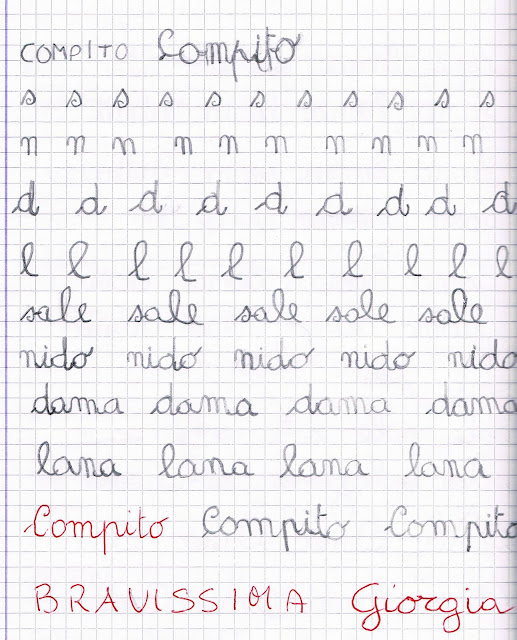 COMPITO Compito
s s s s s s s s s s s
n n n n n n n n n n
d d d d d d d d d
l l l l l l l l l l
sale sale sale sale sale
nido nido nido nido nido
dama dama dama dama
lana lana lana lana
Compito Compito Compito
BRAVISSIMA Giorgia